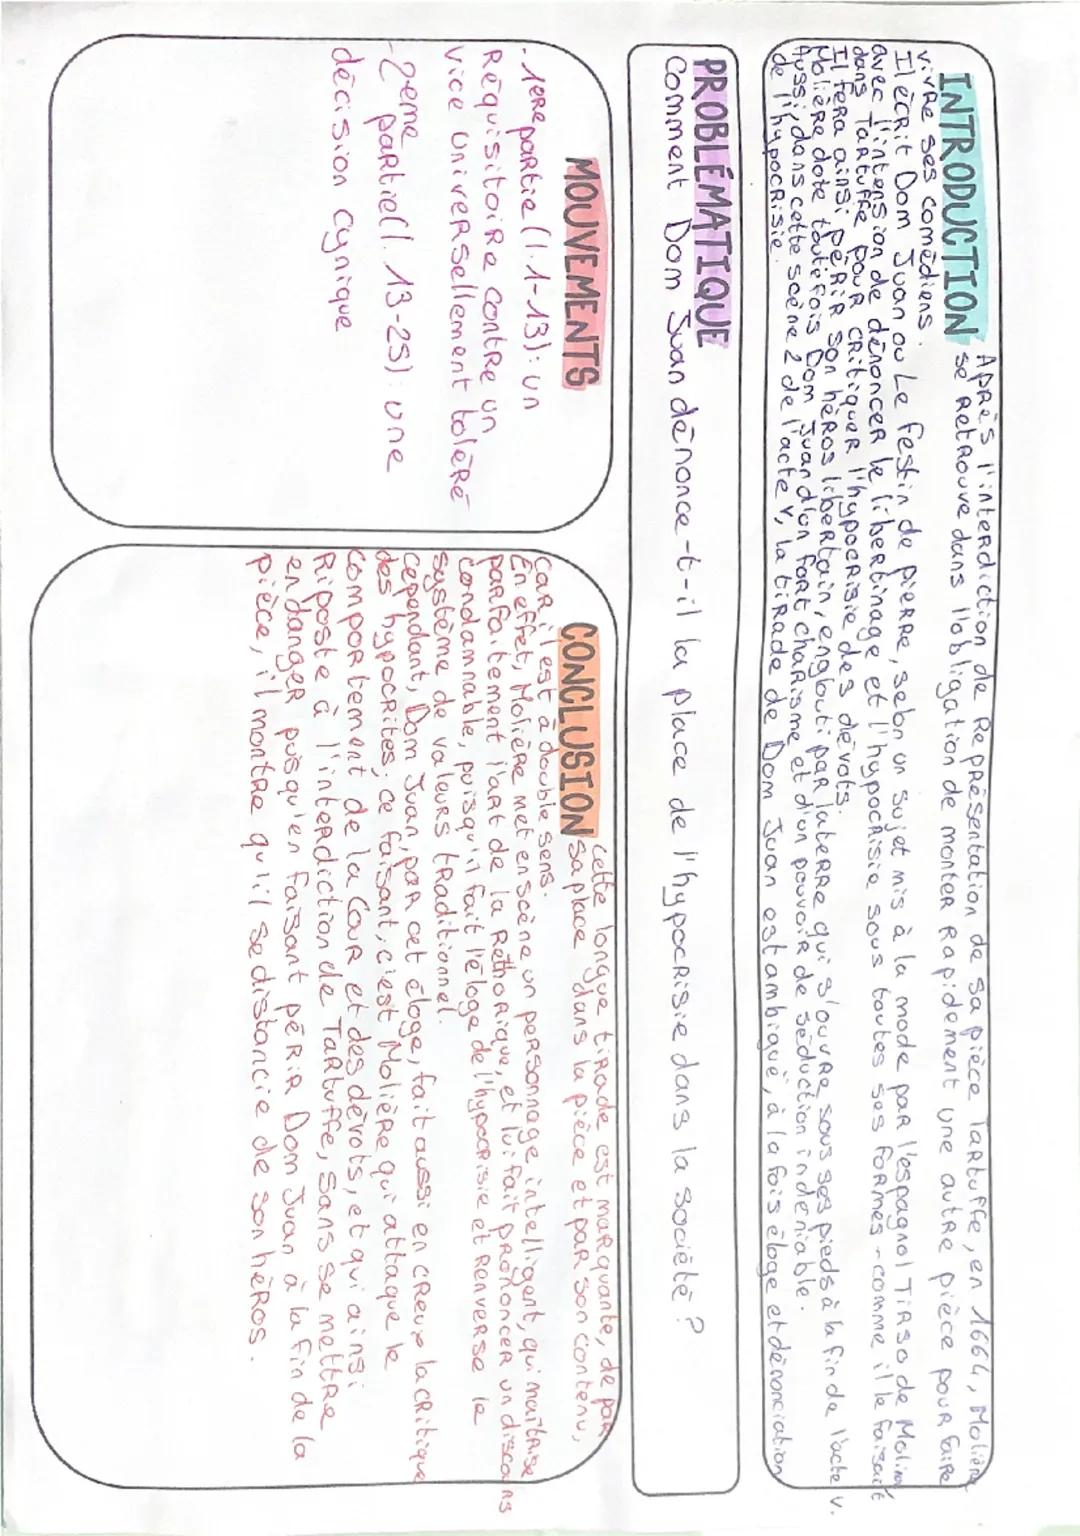 INTRODUCTION Après l'interdiction de représentation de sa pièce Tartuffe, en 1664, Molière
se retrouve dans l'obligation de monter rapidement une autre pièce pour faire
vivre ses comédiens.
Il écrit Dom Juan ou Le festin de pierre, selon un sujet mis à la mode par l'espagnol Tirso de Molina
avec l'intension de dénoncer le libertinage et l'hypocrisie sous toutes ses formes - comme il le faisait
dans Tartuffe pour critiquer l'hypocrisie des dévots.
Il fera ainsi périr son héros libertain, englouti par la terre qui s'ouvre sous ses pieds à la fin de l'acte V.
Molière dote toutefois Dom Juan d'un fort charisme et d'un pouvoir de séduction indéniable.
Aussi, dans cette scène 2 de l'acte V, la tirade de Dom Juan est ambiguë, à la fois éloge et dénonciation
de l'hypocrisie.
PROBLÉMATIQUE
Comment Dom Juan dénonce-t-il la place de l'hypocrisie dans la société ?
MOUVEMENTS
- 1ère partie (l.1-13): un
Réquisitoire contre un
vice universellement toléré
- 2ème partie (l. 13-25): une
décision cynique
CONCLUSION Cette longue tirade est marquante, de par
sa place dans la pièce et par son contenu,
car il est à double sens.
En effet, Molière met en scène un personnage intelligent, qui maîtrise
parfaitement l'art de la rethorique, et lui fait prononcer un discours
condamnable, puisqu'il fait l'éloge de l'hypocrisie et renverse le
système de valeurs traditionnel.
Cependant, Dom Juan, par cet éloge, fait aussi en creux la critique
des hypocrites. ce faisant, c'est Molière qui attaque le
comportement de la Cour et des dévots, et qui ainsi
riposte à l'interdiction de Tartuffe, sans se mettre
en danger pusqu'en faisant périr Dom Juan à la fin de la
pièce, il montre qu'il se distancie de son héros.